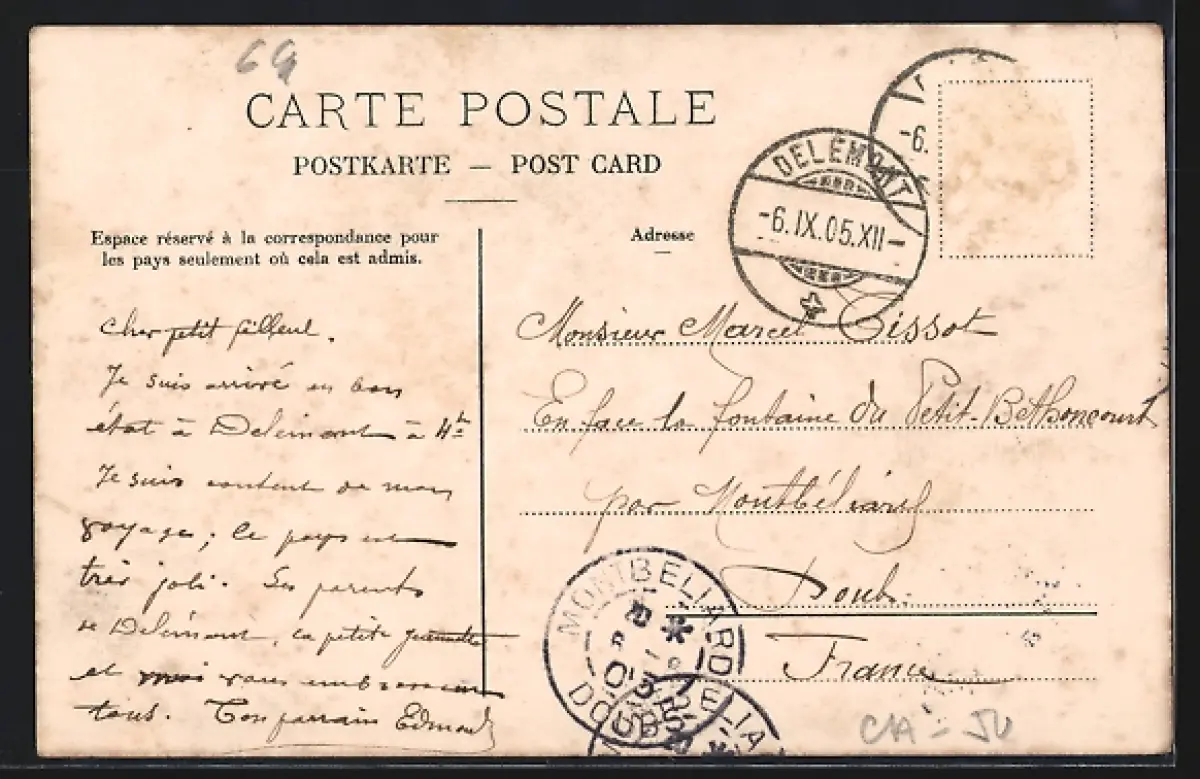 69
CARTE POSTALE
POSTKARTE — POST CARD
Espace réservé à la correspondance pour
les pays seulement où cela est admis.
Adresse
DELÉMONT
-6.IX.05.XII-
-6.
Cher petit filleul.
Je suis arrivé en bon
état à Delémont à 4h
Je suis content de mon
voyage; le pays est
très joli. Les parents
de Delémont, la petite Jeannette
et moi vous embrassons
tous. Ton parrain Edmond
Monsieur Marcel Tissot
En face la fontaine du Petit-Bethoncourt
par Montbéliard
Doubs.
France
MONTBELIARD
05
DOUBS
BELIA
CH - JU